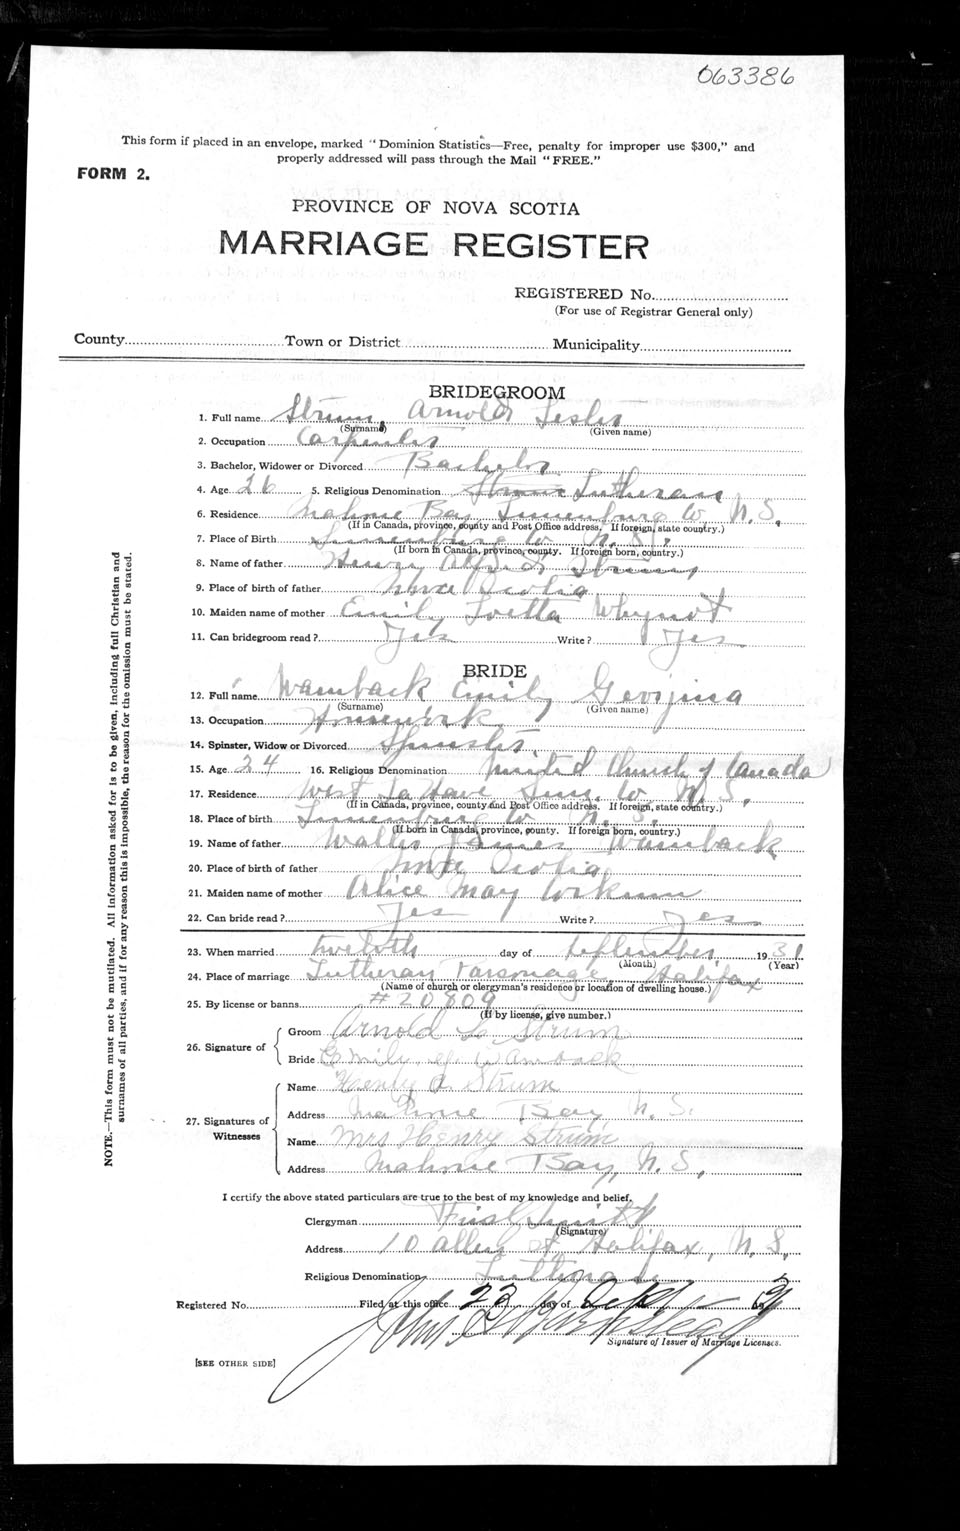 063386
This form if placed in an envelope, marked "Dominion Statistics—Free, penalty for improper use $300," and
properly addressed will pass through the Mail "FREE."
FORM 2.
PROVINCE OF NOVA SCOTIA
MARRIAGE REGISTER
REGISTERED No.
(For use of Registrar General only)
County Town or District Municipality
BRIDEGROOM
1. Full name Strum, Arnold Leslie
(Surname) (Given name)
2. Occupation Carpenter
3. Bachelor, Widower or Divorced Bachelor
4. Age 26 5. Religious Denomination Lutheran
6. Residence Mahone Bay Lunenburg Co N. S.
(If in Canada, province, county and Post Office address. If foreign, state country.)
7. Place of Birth Lunenburg Co N. S.
(If born in Canada, province, county. If foreign born, country.)
8. Name of father Henry Strum
9. Place of birth of father Nova Scotia
10. Maiden name of mother Emily Loetta Whynot
11. Can bridegroom read? Yes Write? Yes
BRIDE
12. Full name Wamback Emily Georgina
(Surname) (Given name)
13. Occupation Housework
14. Spinster, Widow or Divorced Spinster.
15. Age 24 16. Religious Denomination United Church of Canada
17. Residence West La Have Lun. Co N. S.
(If in Canada, province, county and Post Office address. If foreign, state country.)
18. Place of birth Lunenburg Co N. S.
(If born in Canada, province, county. If foreign born, country.)
19. Name of father James Wamback
20. Place of birth of father Nova Scotia
21. Maiden name of mother Alice May Corkum
22. Can bride read? Yes Write? Yes
23. When married twelfth day of September 1931
(Month) (Year)
24. Place of marriage Lutheran Parsonage Halifax
(Name of church or clergyman's residence or location of dwelling house.)
25. By license or banns #20809
(If by license, give number.)
26. Signature of
Groom Arnold L. Strum
Bride Emily G Wamback
27. Signatures of Witnesses
Name Henry A. Strum
Address Mahone Bay, N. S.
Name Mrs Henry Strum
Address Mahone Bay, N. S.
I certify the above stated particulars are true to the best of my knowledge and belief.
Clergyman
(Signature)
Address 10 Allen St Halifax, N. S.
Religious Denomination Lutheran
Registered No. Filed at this office 23 day of Sept 1931
Signature of Issuer of Marriage Licenses.
[SEE OTHER SIDE]
NOTE.—This form must not be mutilated. All information asked for is to be given, including full Christian and
surnames of all parties, and if for any reason this is impossible, the reason for the omission must be stated.